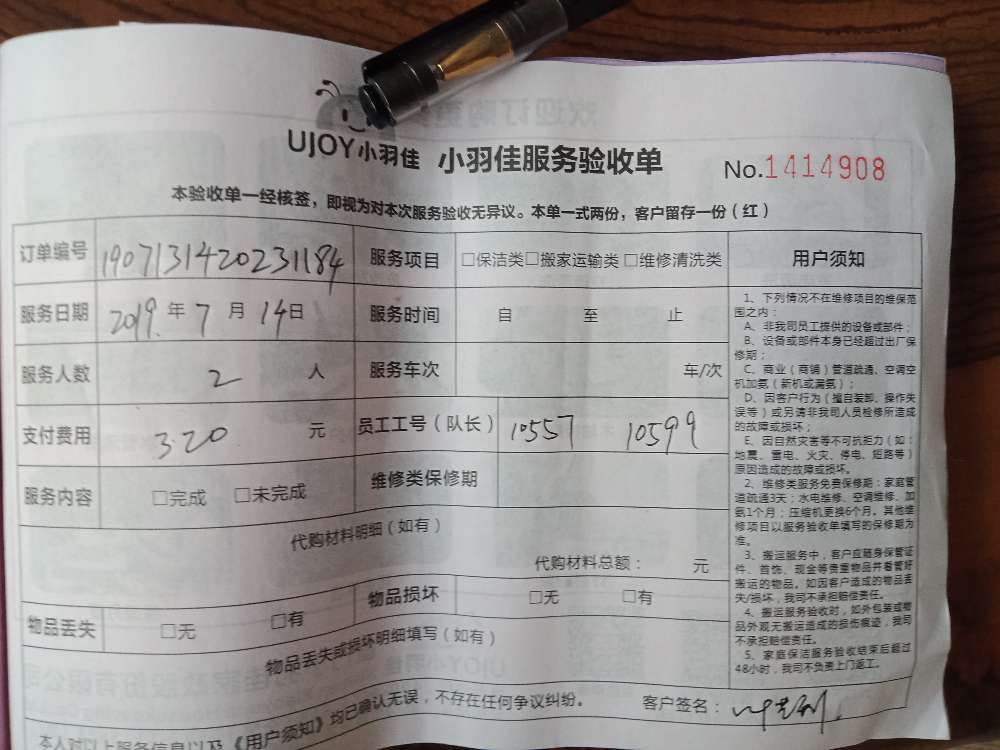 UJOY小羽佳 小羽佳服务验收单 No.1414908
本验收单一经核签，即视为对本次服务验收无异议。本单一式两份，客户留存一份（红）
订单编号 1907131420231184 服务项目 □保洁类□搬家运输类 □维修清洗类
服务日期 2019.年7月14日 服务时间 自 至 止
服务人数 2 人 服务车次 车/次
支付费用 320 元 员工工号（队长） 10557 10599
服务内容 □完成 □未完成 维修类保修期
代购材料明细（如有）
代购材料总额： 元
物品丢失 □无 □有 物品损坏 □无 □有
物品丢失或损坏明细填写（如有）
本人对以上服务信息以及《用户须知》均已确认无误，不存在任何争议纠纷。 客户签名：
用户须知
1、下列情况不在维修项目的维保范
围之内：
A、非我司员工提供的设备或部件；
B、设备或部件本身已经超过出厂保
修期；
C、商业（商铺）管道疏通、空调空
机加氨（新机或漏氨）；
D、因客户行为（擅自装卸、操作失
误等）或另请非我司人员检修所造成
的故障或损坏；
E、因自然灾害等不可抗拒力（如：
地震、雷电、火灾、停电、短路等）
原因造成的故障或损坏。
2、维修类服务免费保修期：家庭管
道疏通3天；水电维修、空调维修、加
氨1个月；压缩机更换6个月。其他维
修项目以服务验收单填写的保修期为
准。
3、搬运服务中，客户应随身保管证
件、首饰、现金等贵重物品并看管好
搬运的物品。如因客户造成的物品丢
失/损坏，我司不承担赔偿责任。
4、搬运服务验收时，如外包装或物
品外观无搬运造成的损伤痕迹，我司
不承担赔偿责任。
5、家庭保洁服务验收结束后超过
48小时，我司不负责上门返工。